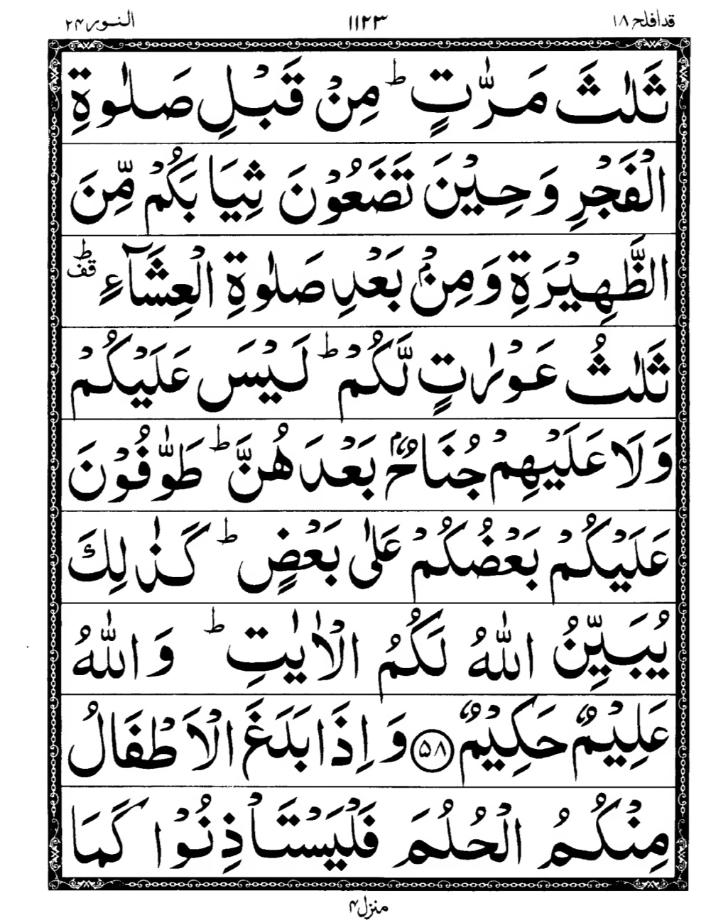 قد افلح ۱۸ ۱۱۲۳ النور ۲۴
ثَلٰثَ مَرّٰتٍ ؕ مِنْ قَبْلِ صَلٰوةِ
الْفَجْرِ وَحِیْنَ تَضَعُوْنَ ثِیَابَكُمْ مِّنَ
الظَّهِیْرَةِ وَمِنْۢ بَعْدِ صَلٰوةِ الْعِشَآءِ ؕ قف
ثَلٰثُ عَوْرٰتٍ لَّكُمْ ؕ لَیْسَ عَلَیْكُمْ
وَلَا عَلَیْهِمْ جُنَاحٌۢ بَعْدَهُنَّ ؕ طَوّٰفُوْنَ
عَلَیْكُمْ بَعْضُكُمْ عَلٰی بَعْضٍ ؕ كَذٰلِكَ
یُبَیِّنُ اللّٰهُ لَكُمُ الْاٰیٰتِ ؕ وَاللّٰهُ
عَلِیْمٌ حَكِیْمٌ ﴿۵۸﴾ وَاِذَا بَلَغَ الْاَطْفَالُ
مِنْكُمُ الْحُلُمَ فَلْیَسْتَاْذِنُوْا كَمَا
منزل ۴